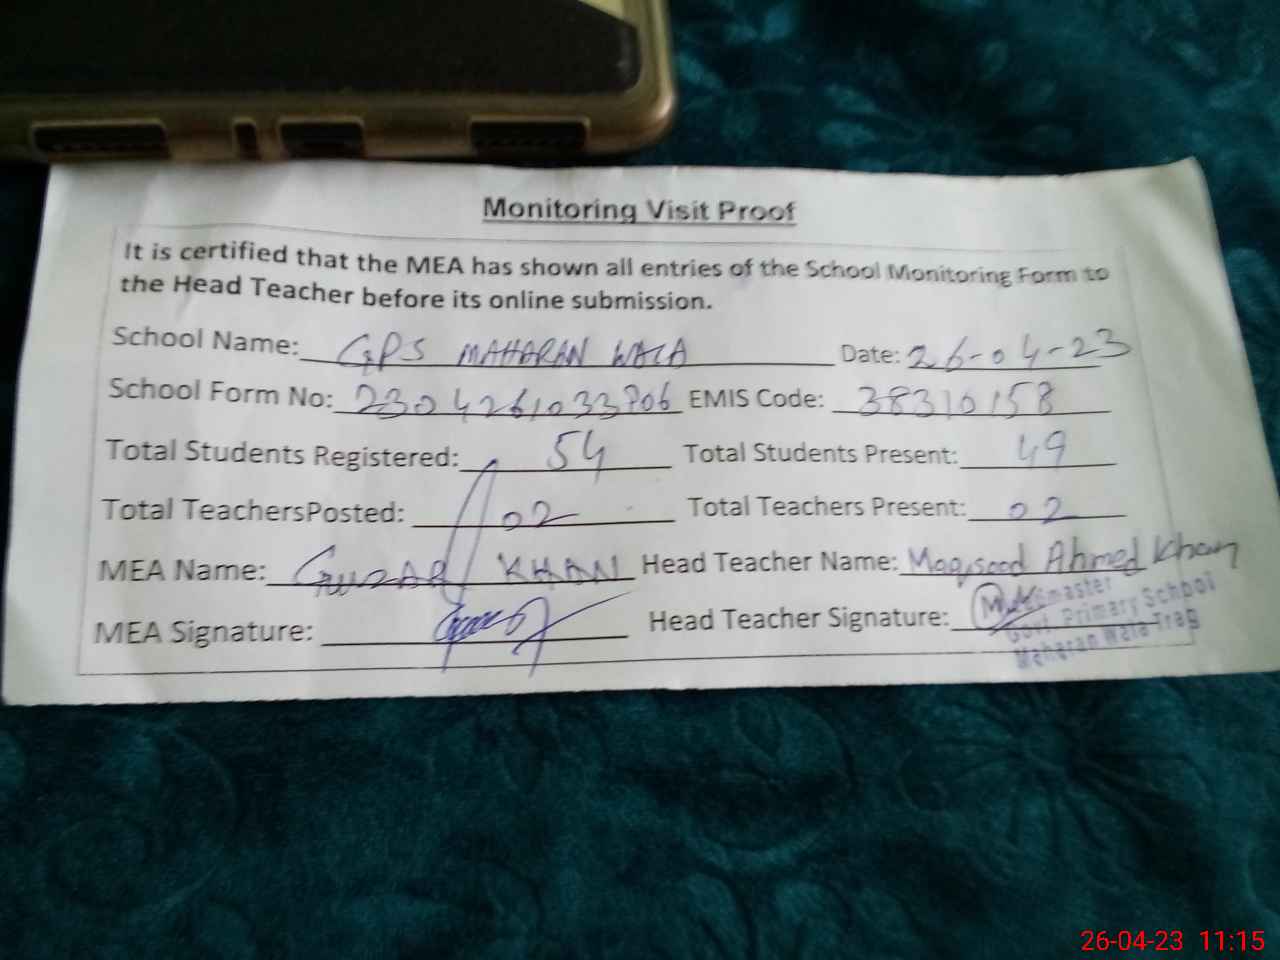 Monitoring Visit Proof
It is certified that the MEA has shown all entries of the School Monitoring Form to
the Head Teacher before its online submission.
School Name: GPS MAHARAN WALA Date: 26-04-23
School Form No: 2304261033706 EMIS Code: 38310158
Total Students Registered: 54 Total Students Present: 49
Total TeachersPosted: 02 Total Teachers Present: 02
MEA Name: GULZAR KHAN Head Teacher Name: Maqsood Ahmed Khan
MEA Signature: Head Teacher Signature:
Headmaster
Govt. Primary School
Maharan Wala Trag
26-04-23 11:15